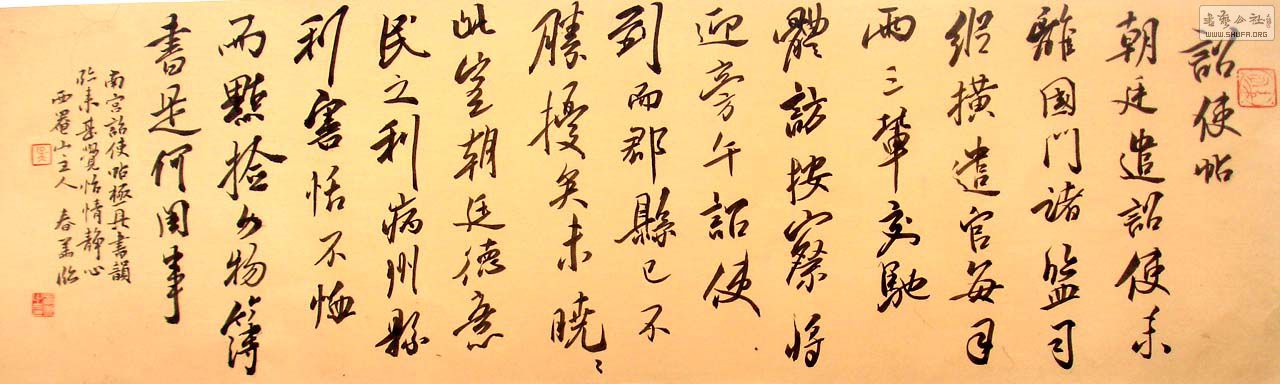 詔使帖
朝廷遣詔使未
離國門諸監司
縱橫遣官每月
兩三輩交馳
體訪按察將
迎旁午詔使
到而郡縣已不
勝擾矣未曉〻
此豈朝廷德意
民之利病州縣
利害恬不恤
而點撿物簿
書是何閑事
南宮詔使帖極具書韻
臨來甚覺怡情静心
西菴山主人 春臨
書藝公社
WWW.SHUFA.ORG